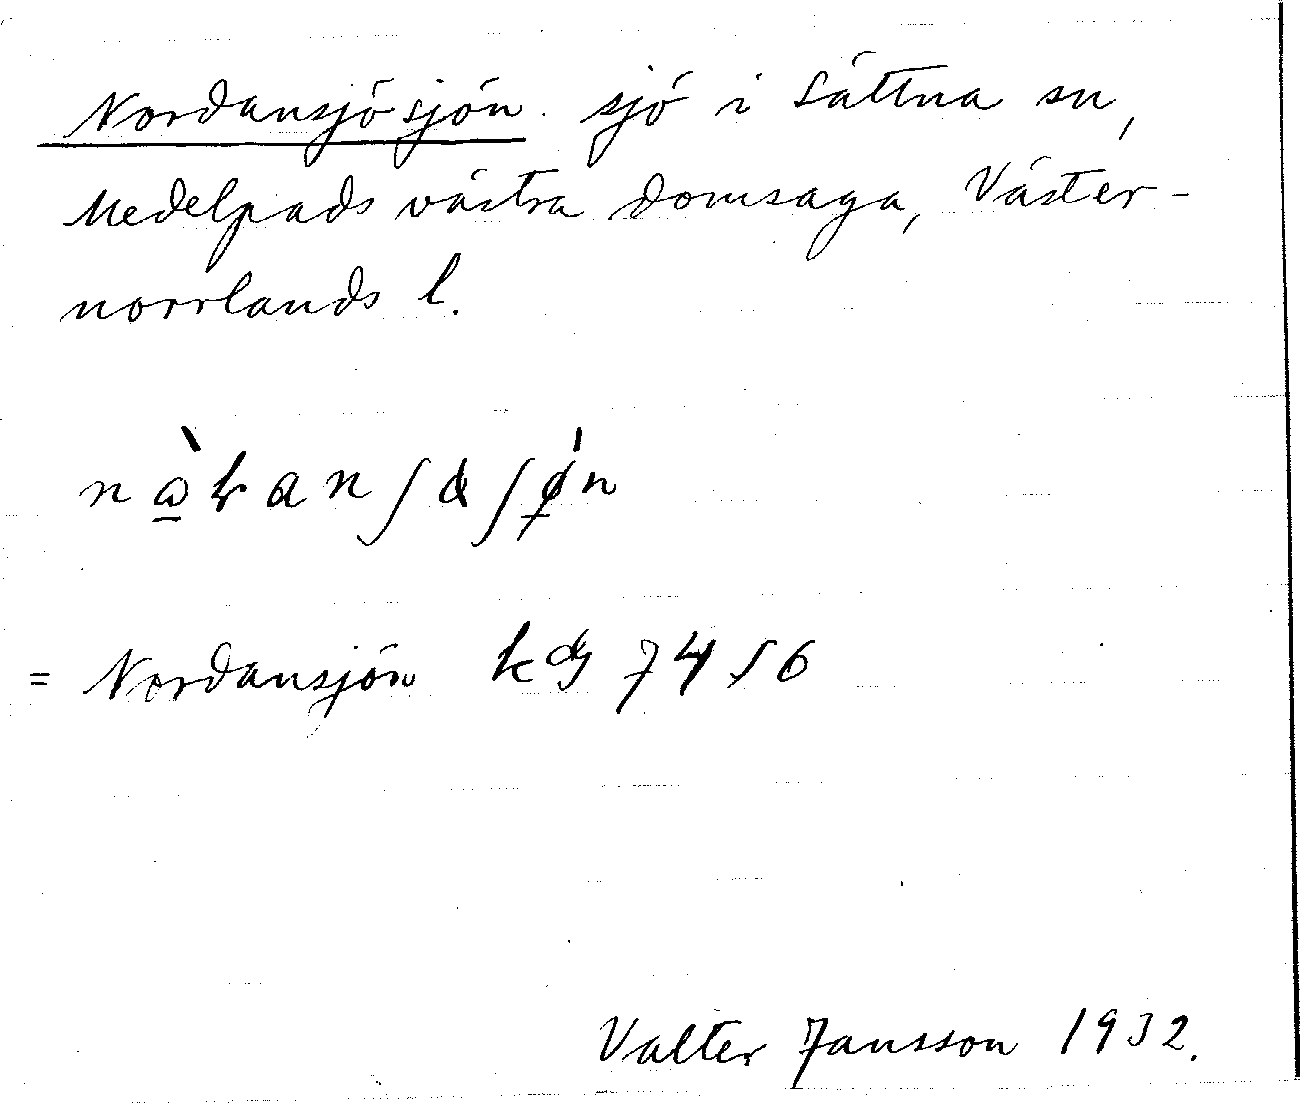 Nordansjösjön. sjö i Sättna sn,
Medelpads västra domsaga, Väster-
norrlands l.
= Nordansjön kbl 7456
Valter Jansson 1932.